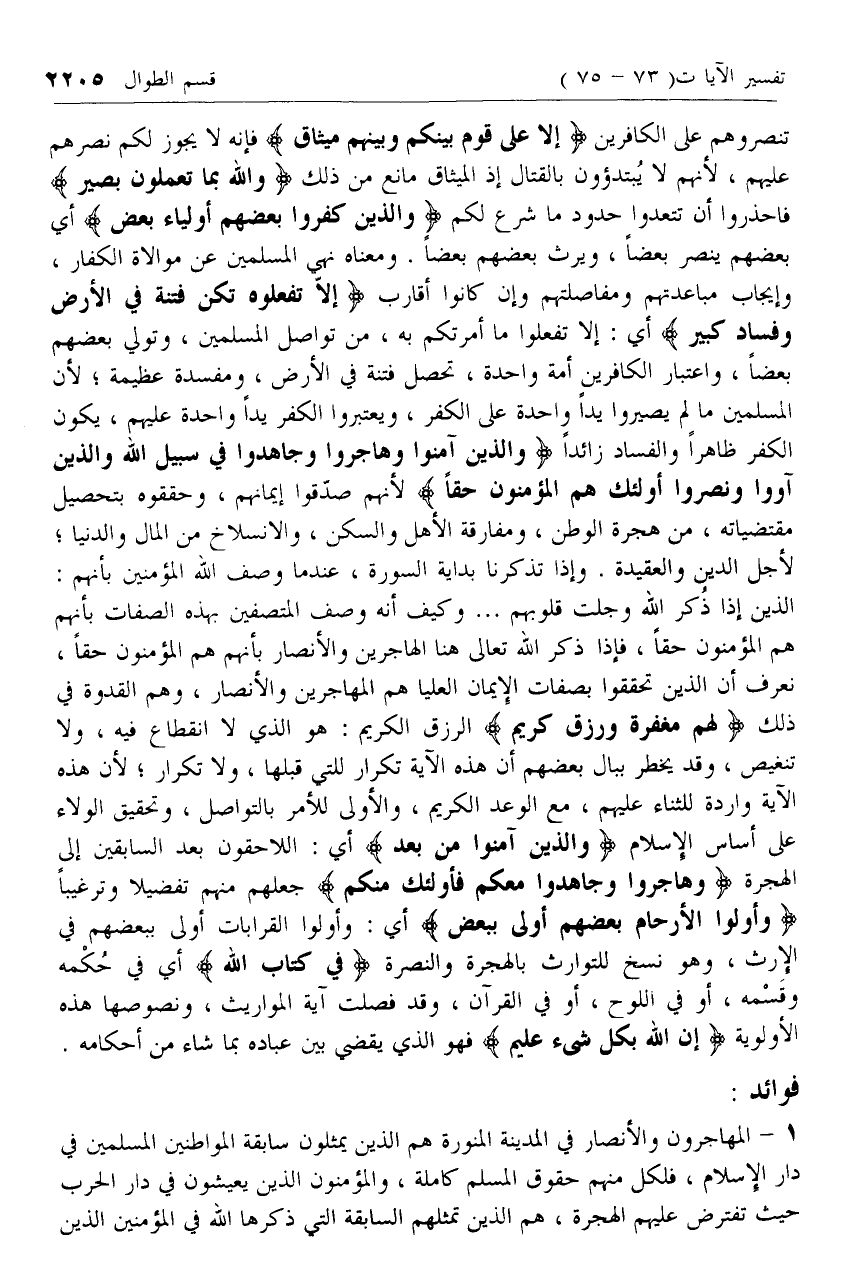 تفسير الآيات ( ٧٣ - ٧٥ ) قسم الطوال ٢٢٠٥
تنصروهم على الكافرين ﴿ إلا على قوم بينكم وبينهم ميثاق ﴾ فإنه لا يجوز لكم نصرهم
عليهم ، لأنهم لا يُبتدؤون بالقتال إذ الميثاق مانع من ذلك ﴿ والله بما تعملون بصير ﴾
فاحذروا أن تتعدوا حدود ما شرع لكم ﴿ والذين كفروا بعضهم أولياء بعض ﴾ أي
بعضهم ينصر بعضاً ، ويرث بعضهم بعضاً . ومعناه نهي المسلمين عن موالاة الكفار ،
وإيجاب مباعدتهم ومفاصلتهم وإن كانوا أقارب ﴿ إلاّ تفعلوه تكن فتنة في الأرض
وفساد كبير ﴾ أي : إلا تفعلوا ما أمرتكم به ، من تواصل المسلمين ، وتولي بعضهم
بعضاً ، واعتبار الكافرين أمة واحدة ، تحصل فتنة في الأرض ، ومفسدة عظيمة ؛ لأن
المسلمين ما لم يصيروا يداً واحدة على الكفر ، ويعتبروا الكفر يداً واحدة عليهم ، يكون
الكفر ظاهراً والفساد زائداً ﴿ والذين آمنوا وهاجروا وجاهدوا في سبيل الله والذين
آووا ونصروا أولئك هم المؤمنون حقاً ﴾ لأنهم صدّقوا إيمانهم ، وحققوه بتحصيل
مقتضياته ، من هجرة الوطن ، ومفارقة الأهل والسكن ، والانسلاخ من المال والدنيا ؛
لأجل الدين والعقيدة . وإذا تذكرنا بداية السورة ، عندما وصف الله المؤمنين بأنهم :
الذين إذا ذُكر الله وجلت قلوبهم ... وكيف أنه وصف المتصفين بهذه الصفات بأنهم
هم المؤمنون حقاً ، فإذا ذكر الله تعالى هنا الهاجرين والأنصار بأنهم هم المؤمنون حقاً ،
نعرف أن الذين تحققوا بصفات الإيمان العليا هم المهاجرين والأنصار ، وهم القدوة في
ذلك ﴿ لهم مغفرة ورزق كريم ﴾ الرزق الكريم : هو الذي لا انقطاع فيه ، ولا
تنغيص ، وقد يخطر ببال بعضهم أن هذه الآية تكرار للتي قبلها ، ولا تكرار ؛ لأن هذه
الآية واردة للثناء عليهم ، مع الوعد الكريم ، والأولى للأمر بالتواصل ، وتحقيق الولاء
على أساس الإسلام ﴿ والذين آمنوا من بعد ﴾ أي : اللاحقون بعد السابقين إلى
الهجرة ﴿ وهاجروا وجاهدوا معكم فأولئك منكم ﴾ جعلهم منهم تفضيلا وترغيباً
﴿ وأولوا الأرحام بعضهم أولى ببعض ﴾ أي : وأولوا القرابات أولى ببعضهم في
الإرث ، وهو نسخ للتوارث بالهجرة والنصرة ﴿ في كتاب الله ﴾ أي في حُكْمه
وقَسْمه ، أو في اللوح ، أو في القرآن ، وقد فصلت آية المواريث ، ونصوصها هذه
الأولوية ﴿ إن الله بكل شيء عليم ﴾ فهو الذي يقضي بين عباده بما شاء من أحكامه .
فوائد :
١ - المهاجرون والأنصار في المدينة المنورة هم الذين يمثلون سابقة المواطنين المسلمين في
دار الإسلام ، فلكل منهم حقوق المسلم كاملة ، والمؤمنون الذين يعيشون في دار الحرب
حيث تفترض عليهم الهجرة ، هم الذين تمثلهم السابقة التي ذكرها الله في المؤمنين الذين